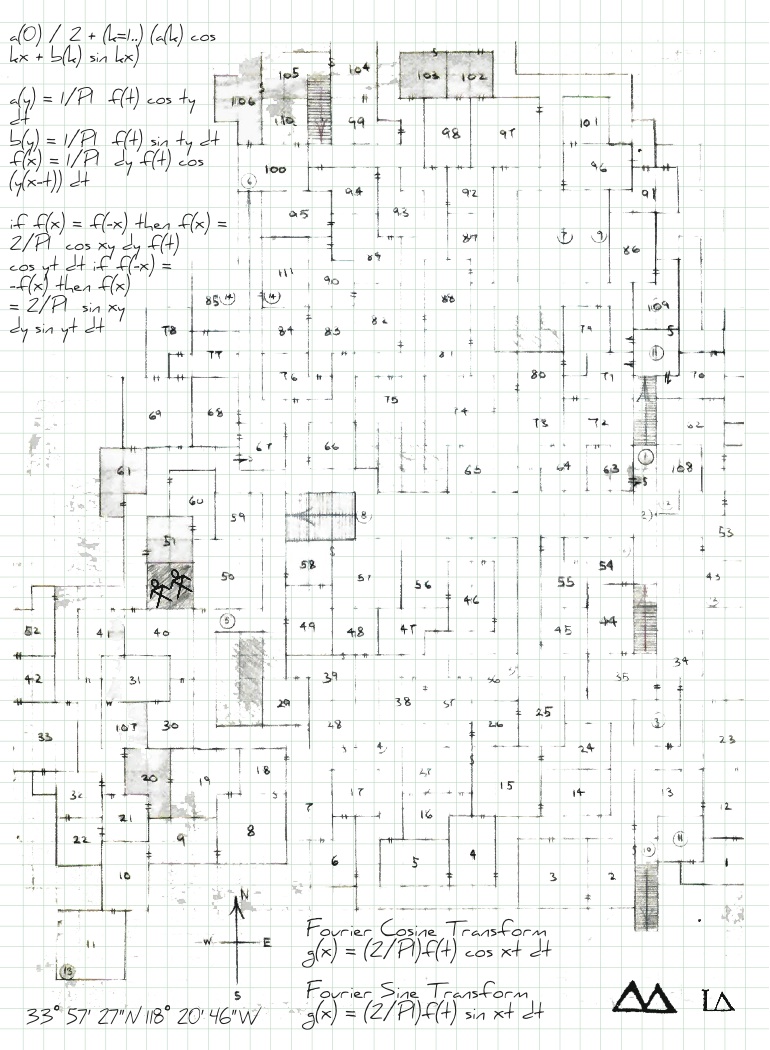 a(0) / 2 + (k=1..) (a(k) cos
kx + b(k) sin kx)
a(y) = 1/PI f(t) cos ty
dt
b(y) = 1/PI f(t) sin ty dt
f(x) = 1/PI dy f(t) cos
(y(x-t)) dt
if f(x) = f(-x) then f(x) =
2/PI cos xy dy f(t)
cos yt dt if f(-x) =
-f(x) then f(x)
= 2/PI sin xy
dy sin yt dt
105 104 103 102
106 110 99 98 97 101
100 96
6 94 92 91
95 93
89 87 7 9 86
111 90
85 14 14 88 109
78 84 83 82 79 S
77 81 11
76 80 71 70
75
69 68 74 73 72 62
67 66 1
61 65 64 63 108
S
60 59 8 2
51 53
58 54
50 57 56 55 43
46
5 49 48 47 45 44
52 41 40
34
42 31 39 35
29 38 37 36
107 30 28 26 25 3 23
33 4 24
20 19 18 27
32 7 17 15 14 13 12
21 16
22 9 8 11
10 6 5 4 10 1
3 2
11
13
N
W E
S
Fourier Cosine Transform
g(x) = (2/PI)f(t) cos xt dt
Fourier Sine Transform
g(x) = (2/PI)f(t) sin xt dt
33° 57' 27"N 118° 20' 46"W